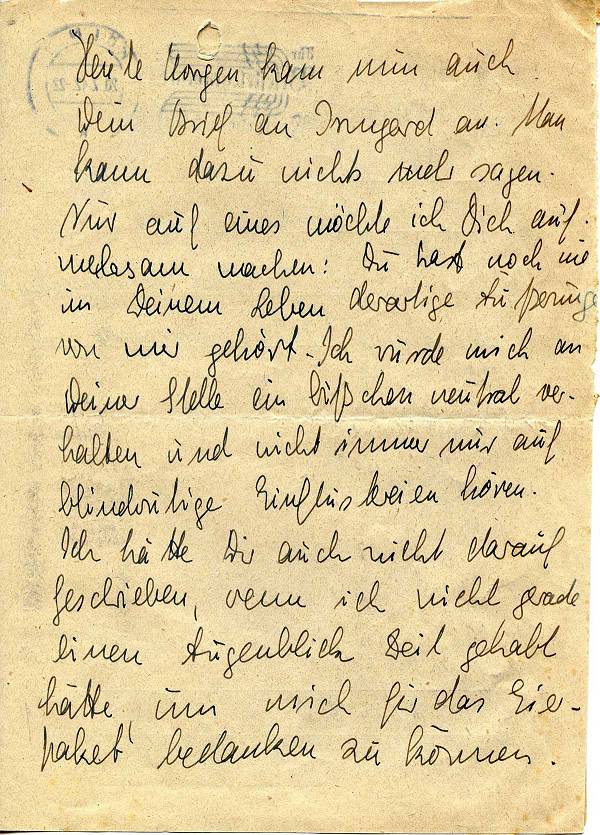 Heute Morgen kam nun auch
Dein Brief an Irmgard an. Man
kann dazu nichts mehr sagen.
Nur auf eines möchte ich Dich auf-
merksam machen: Du hast noch nie
in Deinem Leben derartige Äußerunge
von mir gehört. Ich würde mich an
Deiner Stelle ein bißchen neutral ver-
halten und nicht immer nur auf
blindwütige hören.
Ich hätte Dir auch nicht darauf
geschrieben, wenn ich nicht gerade
einen Augenblick Zeit gehabt
hätte, um mich für das Eier-
paket bedanken zu können.